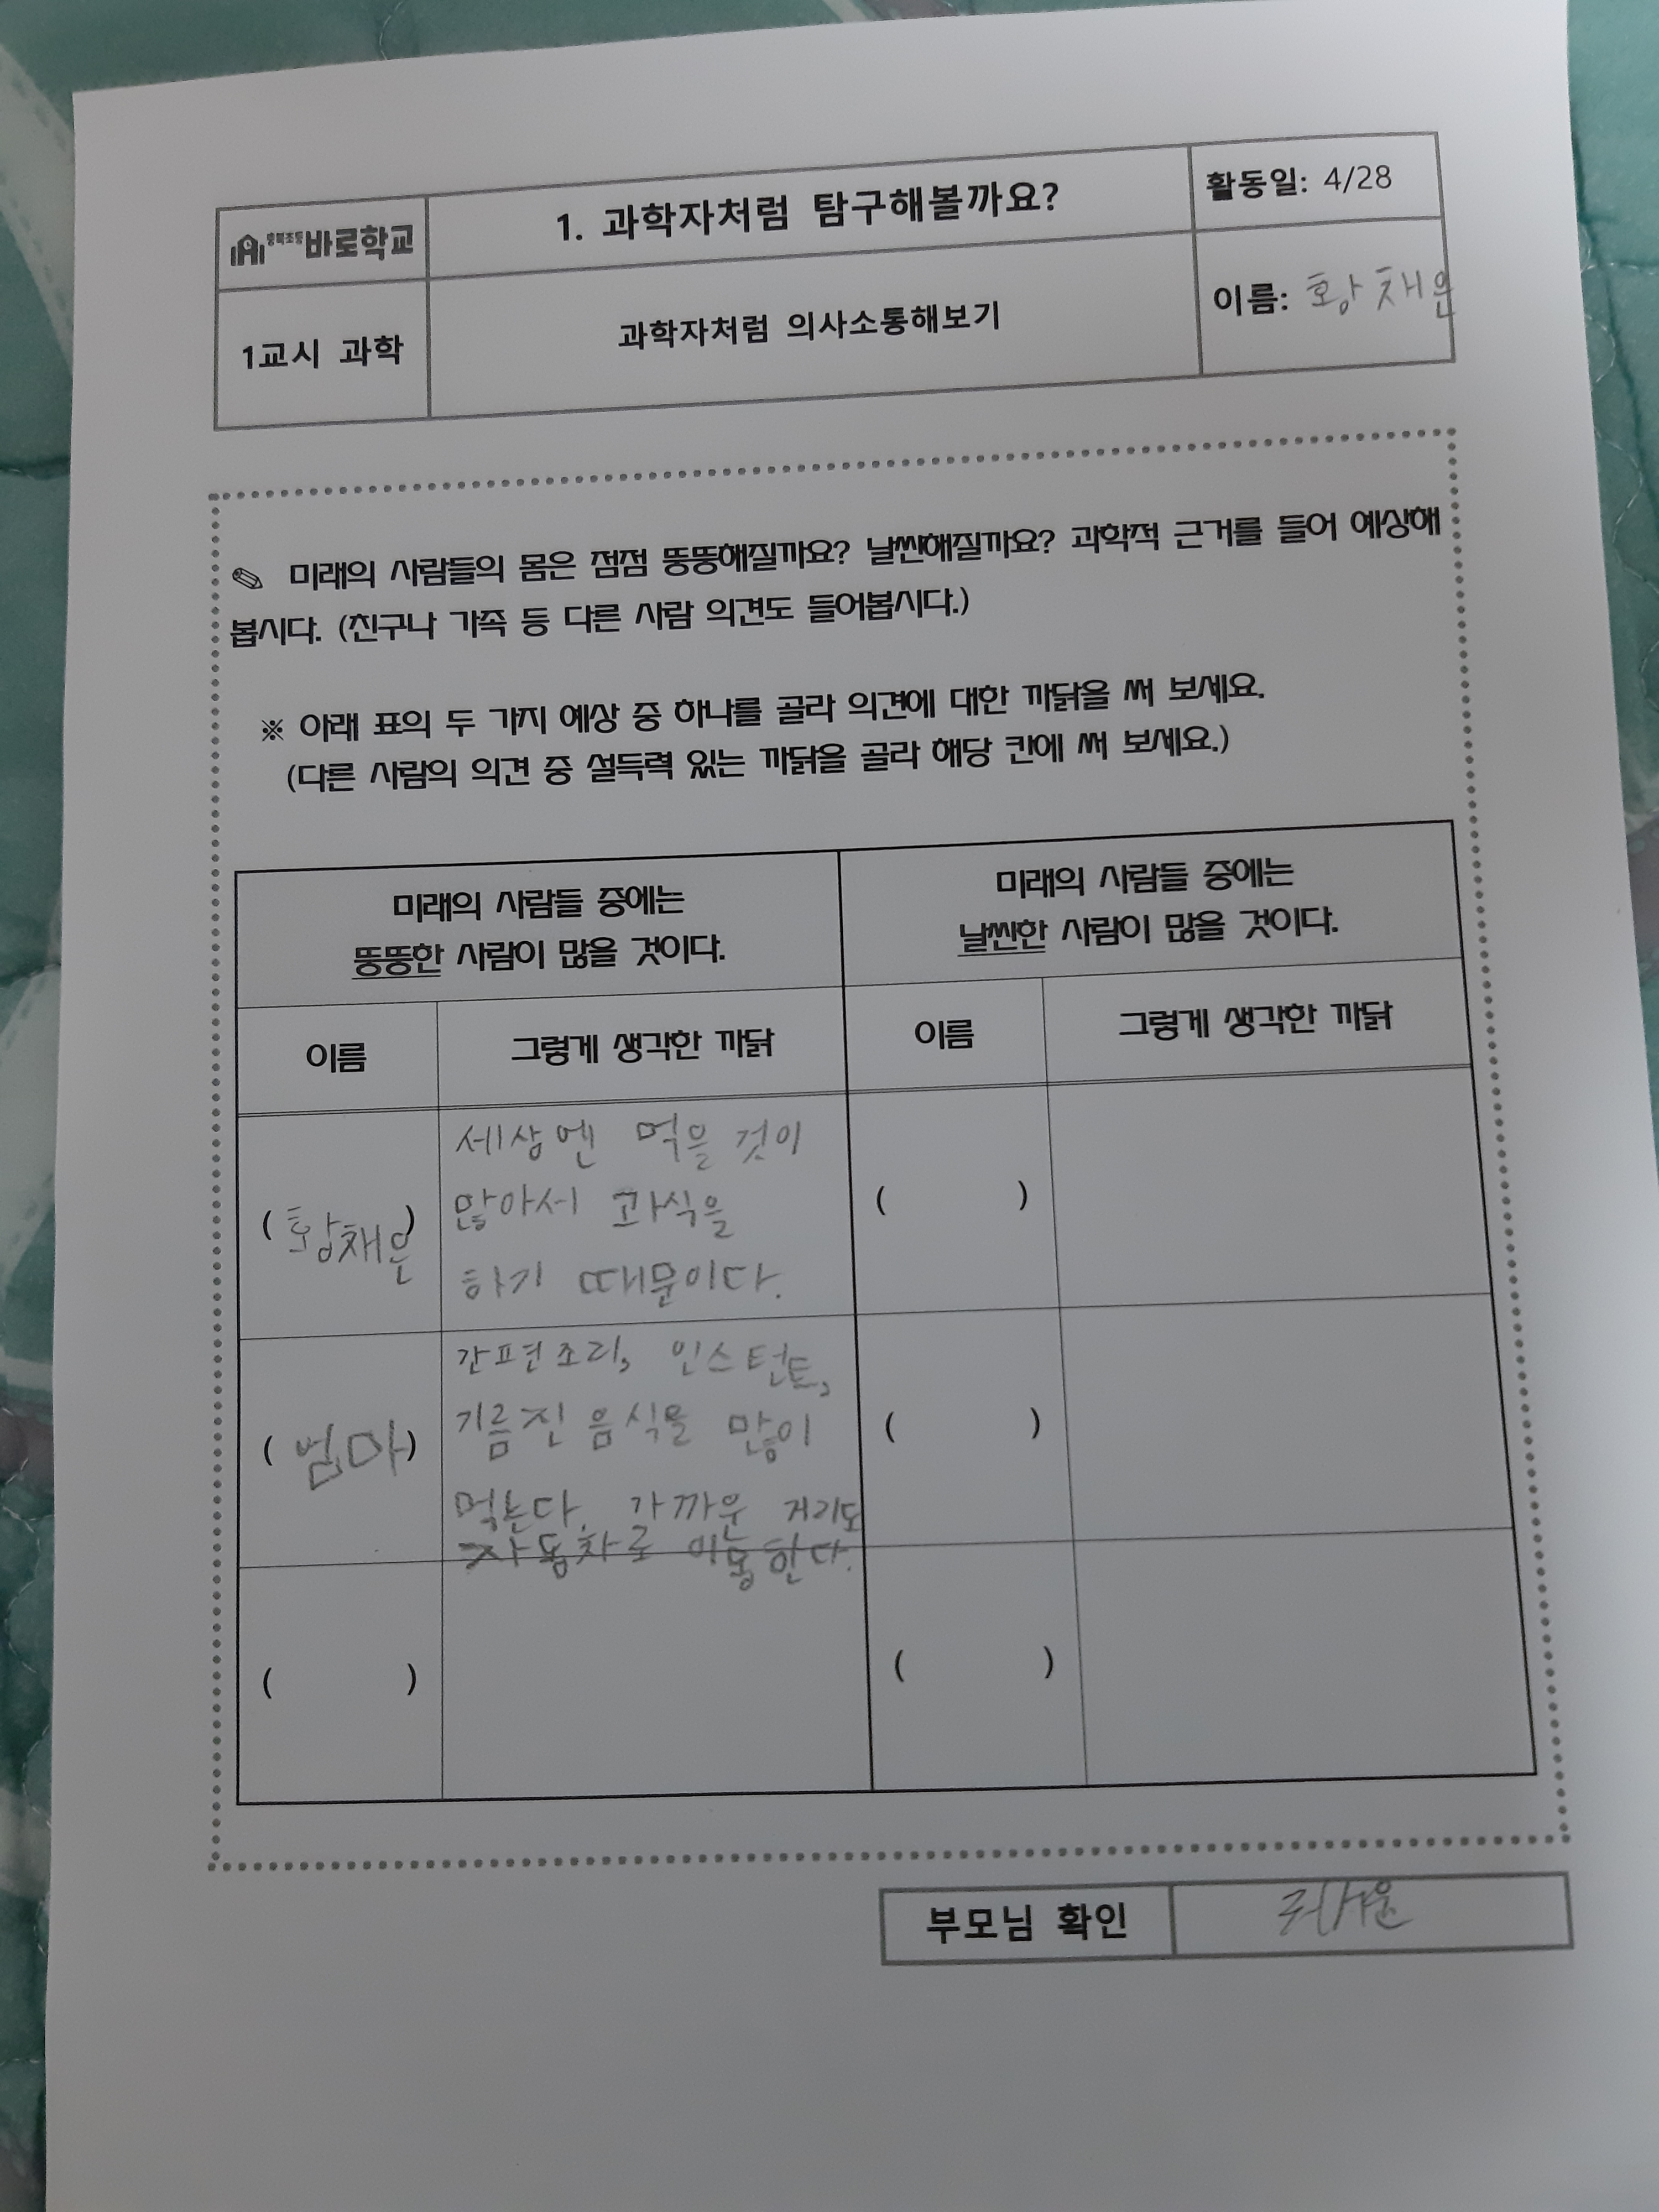 충북초등 바로학교
1. 과학자처럼 탐구해볼까요?
활동일: 4/28
1교시 과학
과학자처럼 의사소통해보기
이름: 황채은
✎ 미래의 사람들의 몸은 점점 뚱뚱해질까요? 날씬해질까요? 과학적 근거를 들어 예상해
봅시다. (친구나 가족 등 다른 사람 의견도 들어봅시다.)
※ 아래 표의 두 가지 예상 중 하나를 골라 의견에 대한 까닭을 써 보세요.
(다른 사람의 의견 중 설득력 있는 까닭을 골라 해당 칸에 써 보세요.)
미래의 사람들 중에는
뚱뚱한 사람이 많을 것이다.
미래의 사람들 중에는
날씬한 사람이 많을 것이다.
이름
그렇게 생각한 까닭
이름
그렇게 생각한 까닭
(황채은)
세상엔 먹을 것이
많아서 과식을
하기 때문이다.
( )
(엄마)
간편조리, 인스턴트,
기름진 음식을 많이
먹는다. 가까운 거리도
자동차로 이동한다.
( )
( )
( )
부모님 확인